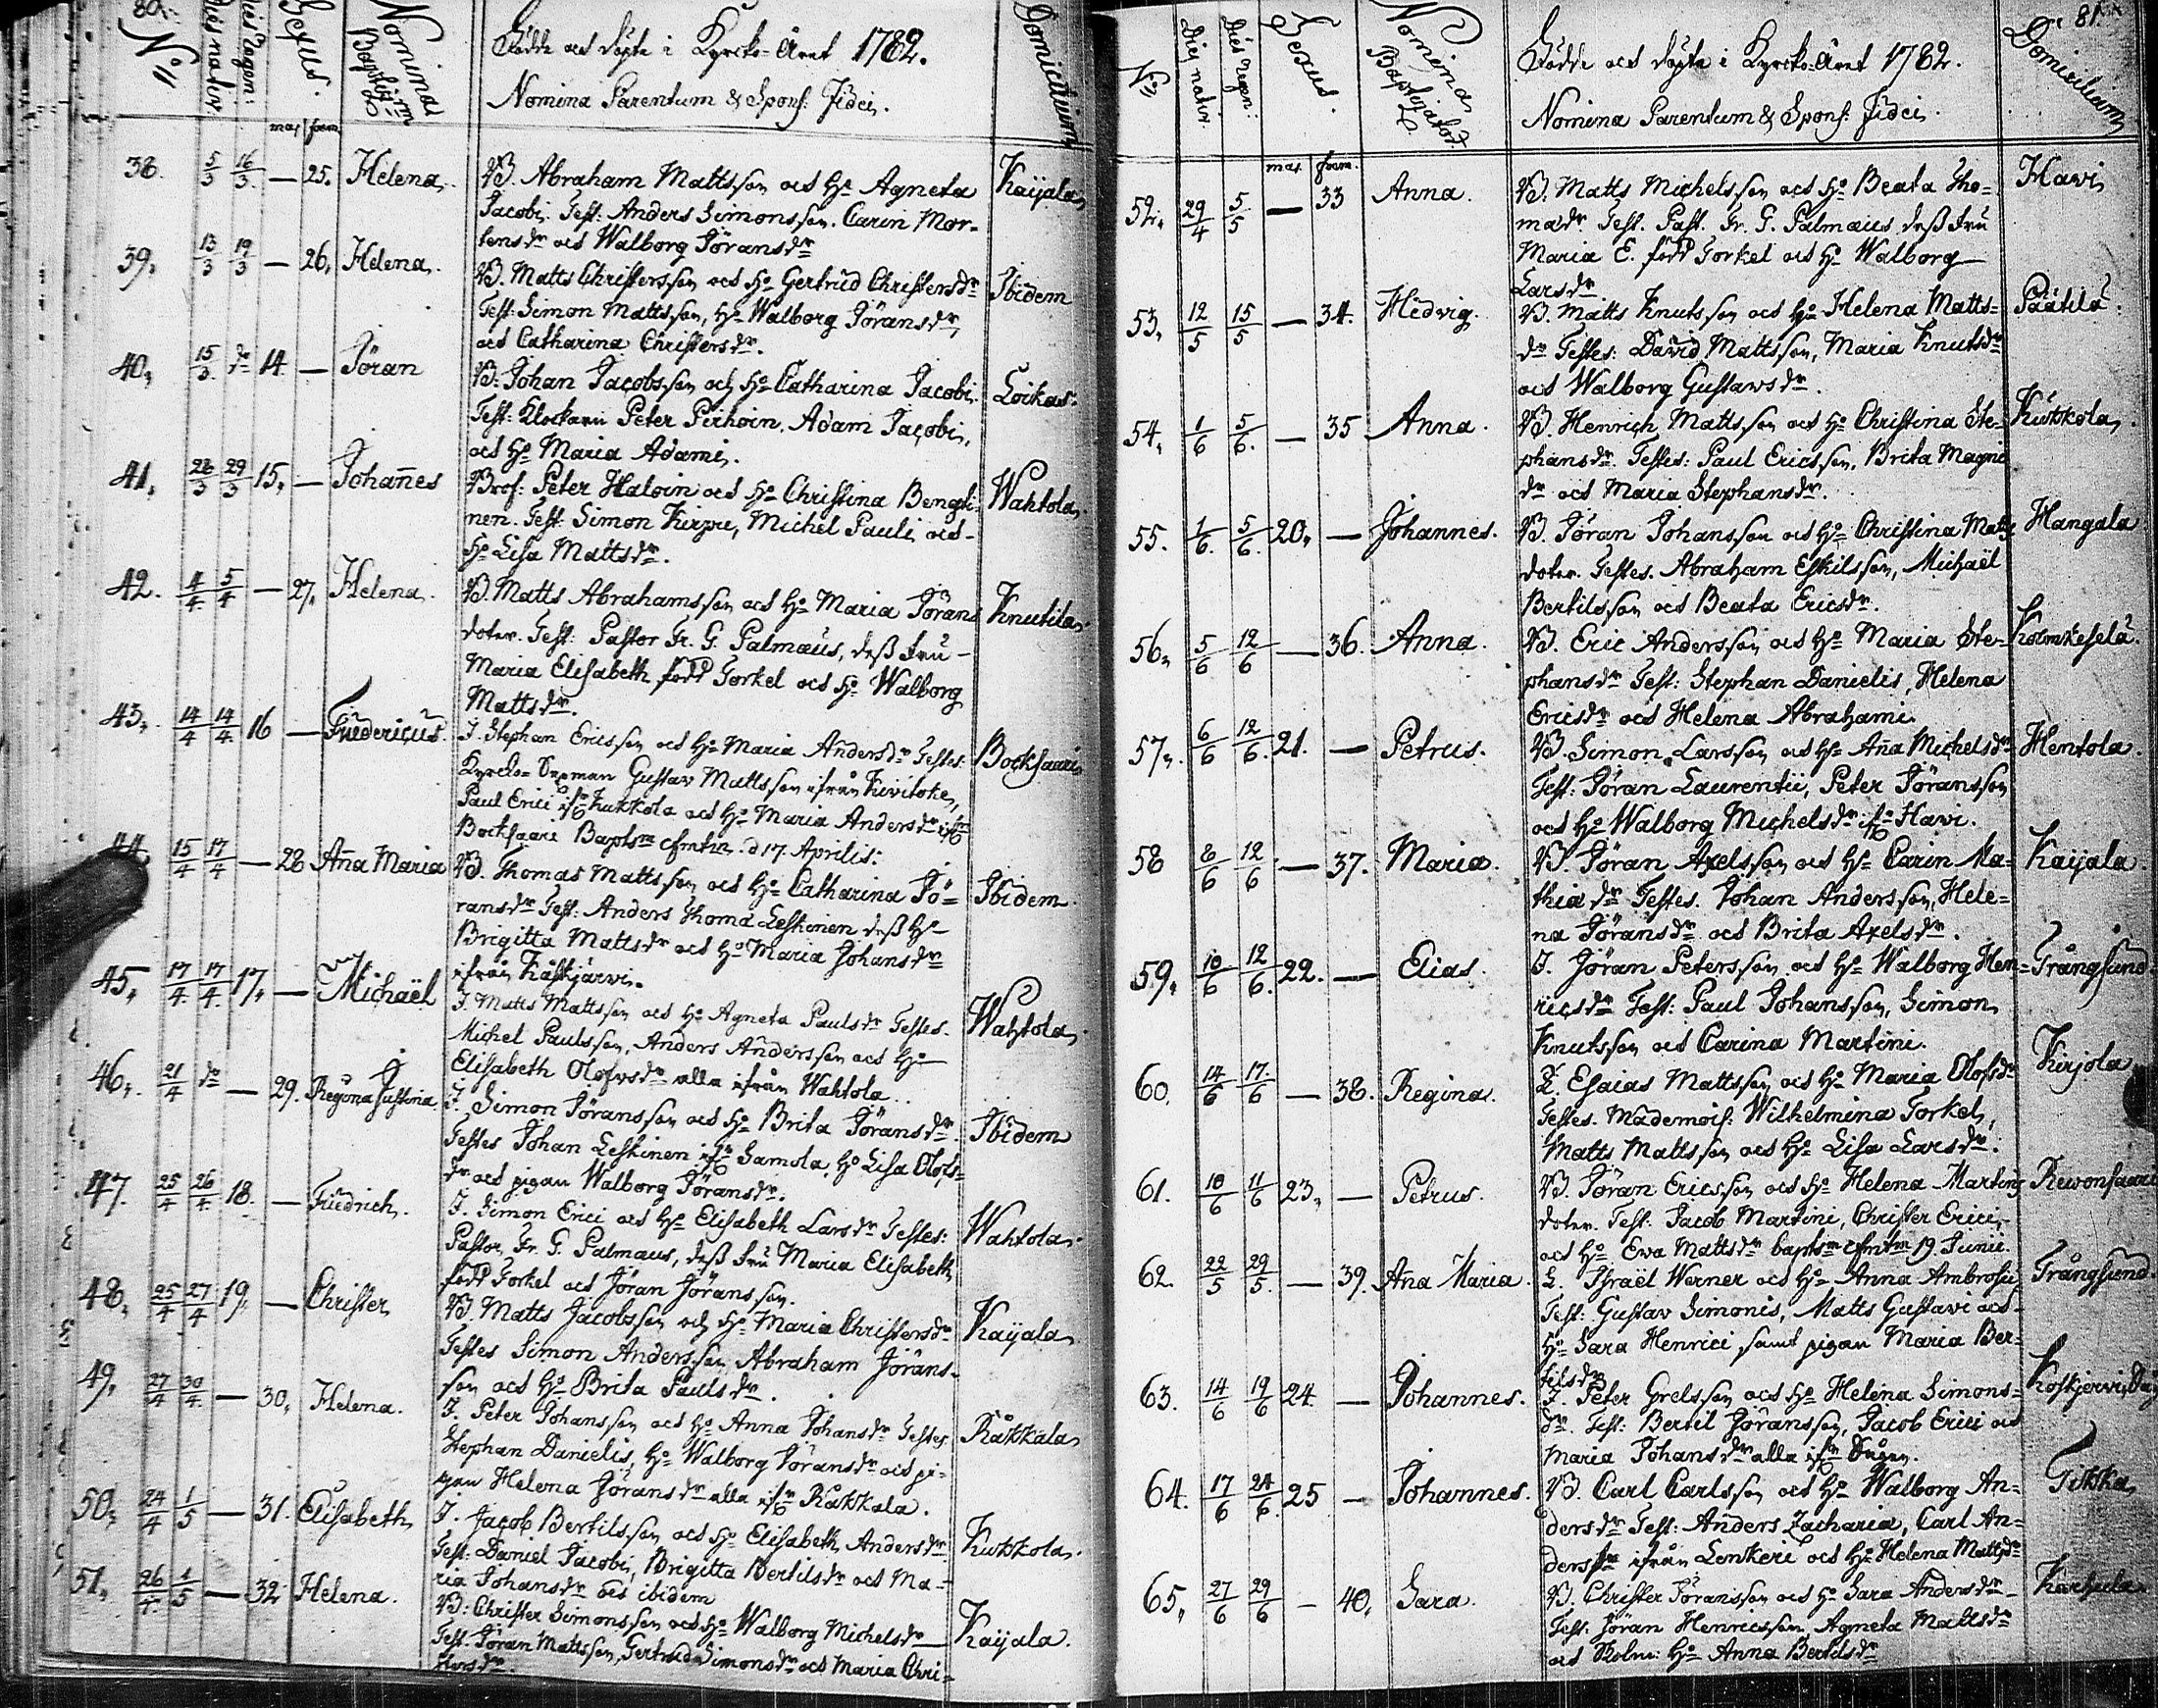 80.
No
Dies nativ.
Dies Regen:
Sexus.
mas foem
Nomina Baptiz.
Födde och döpte i Kyrcko-Året 1782.
Nomina Parentum & Spons: Fidei.
Domicilium
38. 5/3 16/3. — 25. Helena. B. Abraham Mattsson och H: Agneta Kaijala
Jacobi. Test: Anders Simonsson. Carin Mor-
tensdr och Walborg Jöransdr
39. 13/3 19/3 — 26. Helena. B. Matts Christersson och H: Gertrud Christersdr Ibidem
Test: Simon Mattsson, H: Walborg Jöransdr,
och Catharina Christersdr.
40. 15/3. do 14. — Jöran B: Johan Jacobsson och H: Catharina Jacobi. Loikas.
Test: Klockaren Peter Pirhoin, Adam Jacobi,
och H: Maria Adami.
41. 28/3 29/3 15. — Johannes Prof: Peter Haloin och H: Christina Bengti- Wahtola.
nen. Test: Simon Kirpu, Michel Pauli, och
H: Lisa Mattsdr.
42. 4/4 5/4 — 27. Helena. B. Matts Abrahamsson och H: Maria Jörans Knutila.
doter. Test: Pastor Fr. G. Palmæus, dess fru
Maria Elisabeth född Torkel och H: Walborg
Mattsdr.
43. 14/4 14/4. 16 — Friedericus. I. Stephan Ericsson och H: Maria Andersdr Testes: Bocksaari
Kyrcko- Gustav Mattsson ifrån
Paul Erici ifr Kukkola och H: Maria Andersdr ifr
Bocksaari Baptsm cfmtm d 17. Aprilis:
44. 15/4 17/4 — 28 Aña Maria B. Thomas Mattsson och H: Catharina Jö- Ibidem.
ransdr Test: Anders Thoma Leskinen dess H
Brigitta Mattsdr och H: Maria Johansdr
ifrån Kåskjärvi.
45. 17/4. 17/4. 17. — Michaël I. Matts Mattsson och H: Agneta Paulsdr Testes. Wahtola.
Michel Paulsson, Anders Andersson och H:
Elisabeth Olofsdr alla ifrån Wahtola.
46. 21/4 do — 29. Regina Justina I. Simon Jöransson och H: Brita Jöransdr. Ibidem
Testes Johan Leskinen ifr Samola, H: Lisa Olofs-
dr och pigan Walborg Jöransdr.
47. 25/4 26/4. 18. — Friedrich. I. Simon Erici och H: Elisabeth Larsdr Testes: Wahtola.
Pastor Fr. G. Palmæus, dess fru Maria Elisabeth
född Torkel och Jöran Jöransson.
48. 25/4 27/4 19. — Christer B. Matts Jacobsson och H: Maria Christersdr Kaijala.
Testes Simon Andersson, Abraham Jörans-
son och H: Brita Paulsdr.
49. 27/4 30/4. — 30. Helena. I. Peter Johansson och H: Anna Johansdr Testes Räkkala.
Stephan Danielis, H: Walborg Jöransdr och pi-
gan Helena Jöransdr alla ifr Räkkala.
50. 24/4 1/5 — 31. Elisabeth I. Jacob Bertilsson och H: Elisabeth Andersdr Kukkola.
Test: Daniel Jacobi, Brigitta Bertilsdr och Ma-
ria Johansdr och ibidem
51. 26/4. 1/5 — 32 Helena. B: Christer Simonsson och H: Walborg Michelsdr Kaijala.
Test. Jöran Mattsson, Gertrud Simonsdr och Maria Chri-
stersdr.
81.
No
Dies nativ.
Dies regen:
Sexus.
mas foem.
Nomina Baptizatod.
Födde och döpte i Kyrcko-Året 1782.
Nomina Parentum & Spons: Fidei.
Domicilium
52. 29/4 5/5 — 33 Anna. B. Matts Michelsson och H: Beata Tho- Hawi
madr. Test. Past. Fr. G. Palmæus dess fru
Maria E. född Torkel och H: Walborg
Larsdr
53. 12/5 15/5 — 34. Hedvig. B. Matts Knutsson och H: Helena Matts- Päätilä.
dr Testes: David Mattsson, Maria Knutsdr
och Walborg Gustawsdr.
54. 1/6 5/6. — 35 Anna. B. Henrich Mattsson och H: Christina Ste- Kukkola.
phansdr. Testes: Paul Ericsson, Brita Magni
dr och Maria Stephansdr.
55. 1/6. 5/6. 20. — Johannes. B. Jöran Johansson och H: Christina Matts Mangala
doter. Testes. Abraham Eskilsson, Michaël
Bertilsson och Beata Ericsdr.
56. 5/6 12/6 — 36. Anna. B. Eric Andersson och H: Maria Ste- Kolmkeselä.
phansdr Test: Stephan Danielis, Helena
Ericsdr och Helena Abrahami.
57. 6/6 12/6. 21. — Petrus. B. Simon Larsson och H: Aña Michelsdr Hentola.
Test: Jöran Laurentii, Peter Jöransson
och H: Walborg Michelsdr ifr Hawi.
58 8/6 12/6 — 37. Maria. B. Jöran Axelsson och H: Carin Ma- Kaijala.
thiadr Testes. Johan Andersson, Hele-
na Jöransdr och Brita Axelsdr.
59. 10/6 12/6. 22. — Elias. I. Jöran Petersson och H: Walborg Hen- Trångsund
ricsdr Test: Paul Johansson, Simon
Knutsson och Carina Martini.
60. 14/6 17/6 — 38. Regina. I. Esaias Mattsson och H: Maria Olofsdr Kirjola
Testes. Mademois: Wilhelmina Torkel,
Matts Mattsson och H: Lisa Larsdr.
61. 10/6 11/6 23. — Petrus. B. Jöran Ericsson och H: Helena Martins Rewonsaari
doter. Test: Jacob Martini, Christer Erici,
och H: Ewa Mattsdr baptsm cfmtm 19 Junii.
62. 22/5 29/5. — 39. Aña Maria. S. Israël Werner och H: Anna Ambrosii Trångsund.
Test: Gustav Simonis, Matts Gustavi och
H: Sara Henrici samt pigan Maria Ber-
tilsdr
63. 14/6 19/6 24. — Johannes. I. Peter Grelsson och H: Helena Simons- Koskjervi
dr. Test: Bertil Jöransson, Jacob Erici och
Maria Johansdr alla ifr
64. 17/6 24/6. 25 — Johannes. B. Carl Carlsson och H: Walborg An- Tikka
dersdr Test: Anders Zacharia, Carl An-
dersson ifrån Lenkeri och H: Helena Mattsdr
65. 27/6 29/6 — 40. Sara. B. Christer Jöransson och H: Sara Andersdr Karhula
Test. Jöran Henricsson, Agneta Mattsdr
och H: Anna Bertilsdr